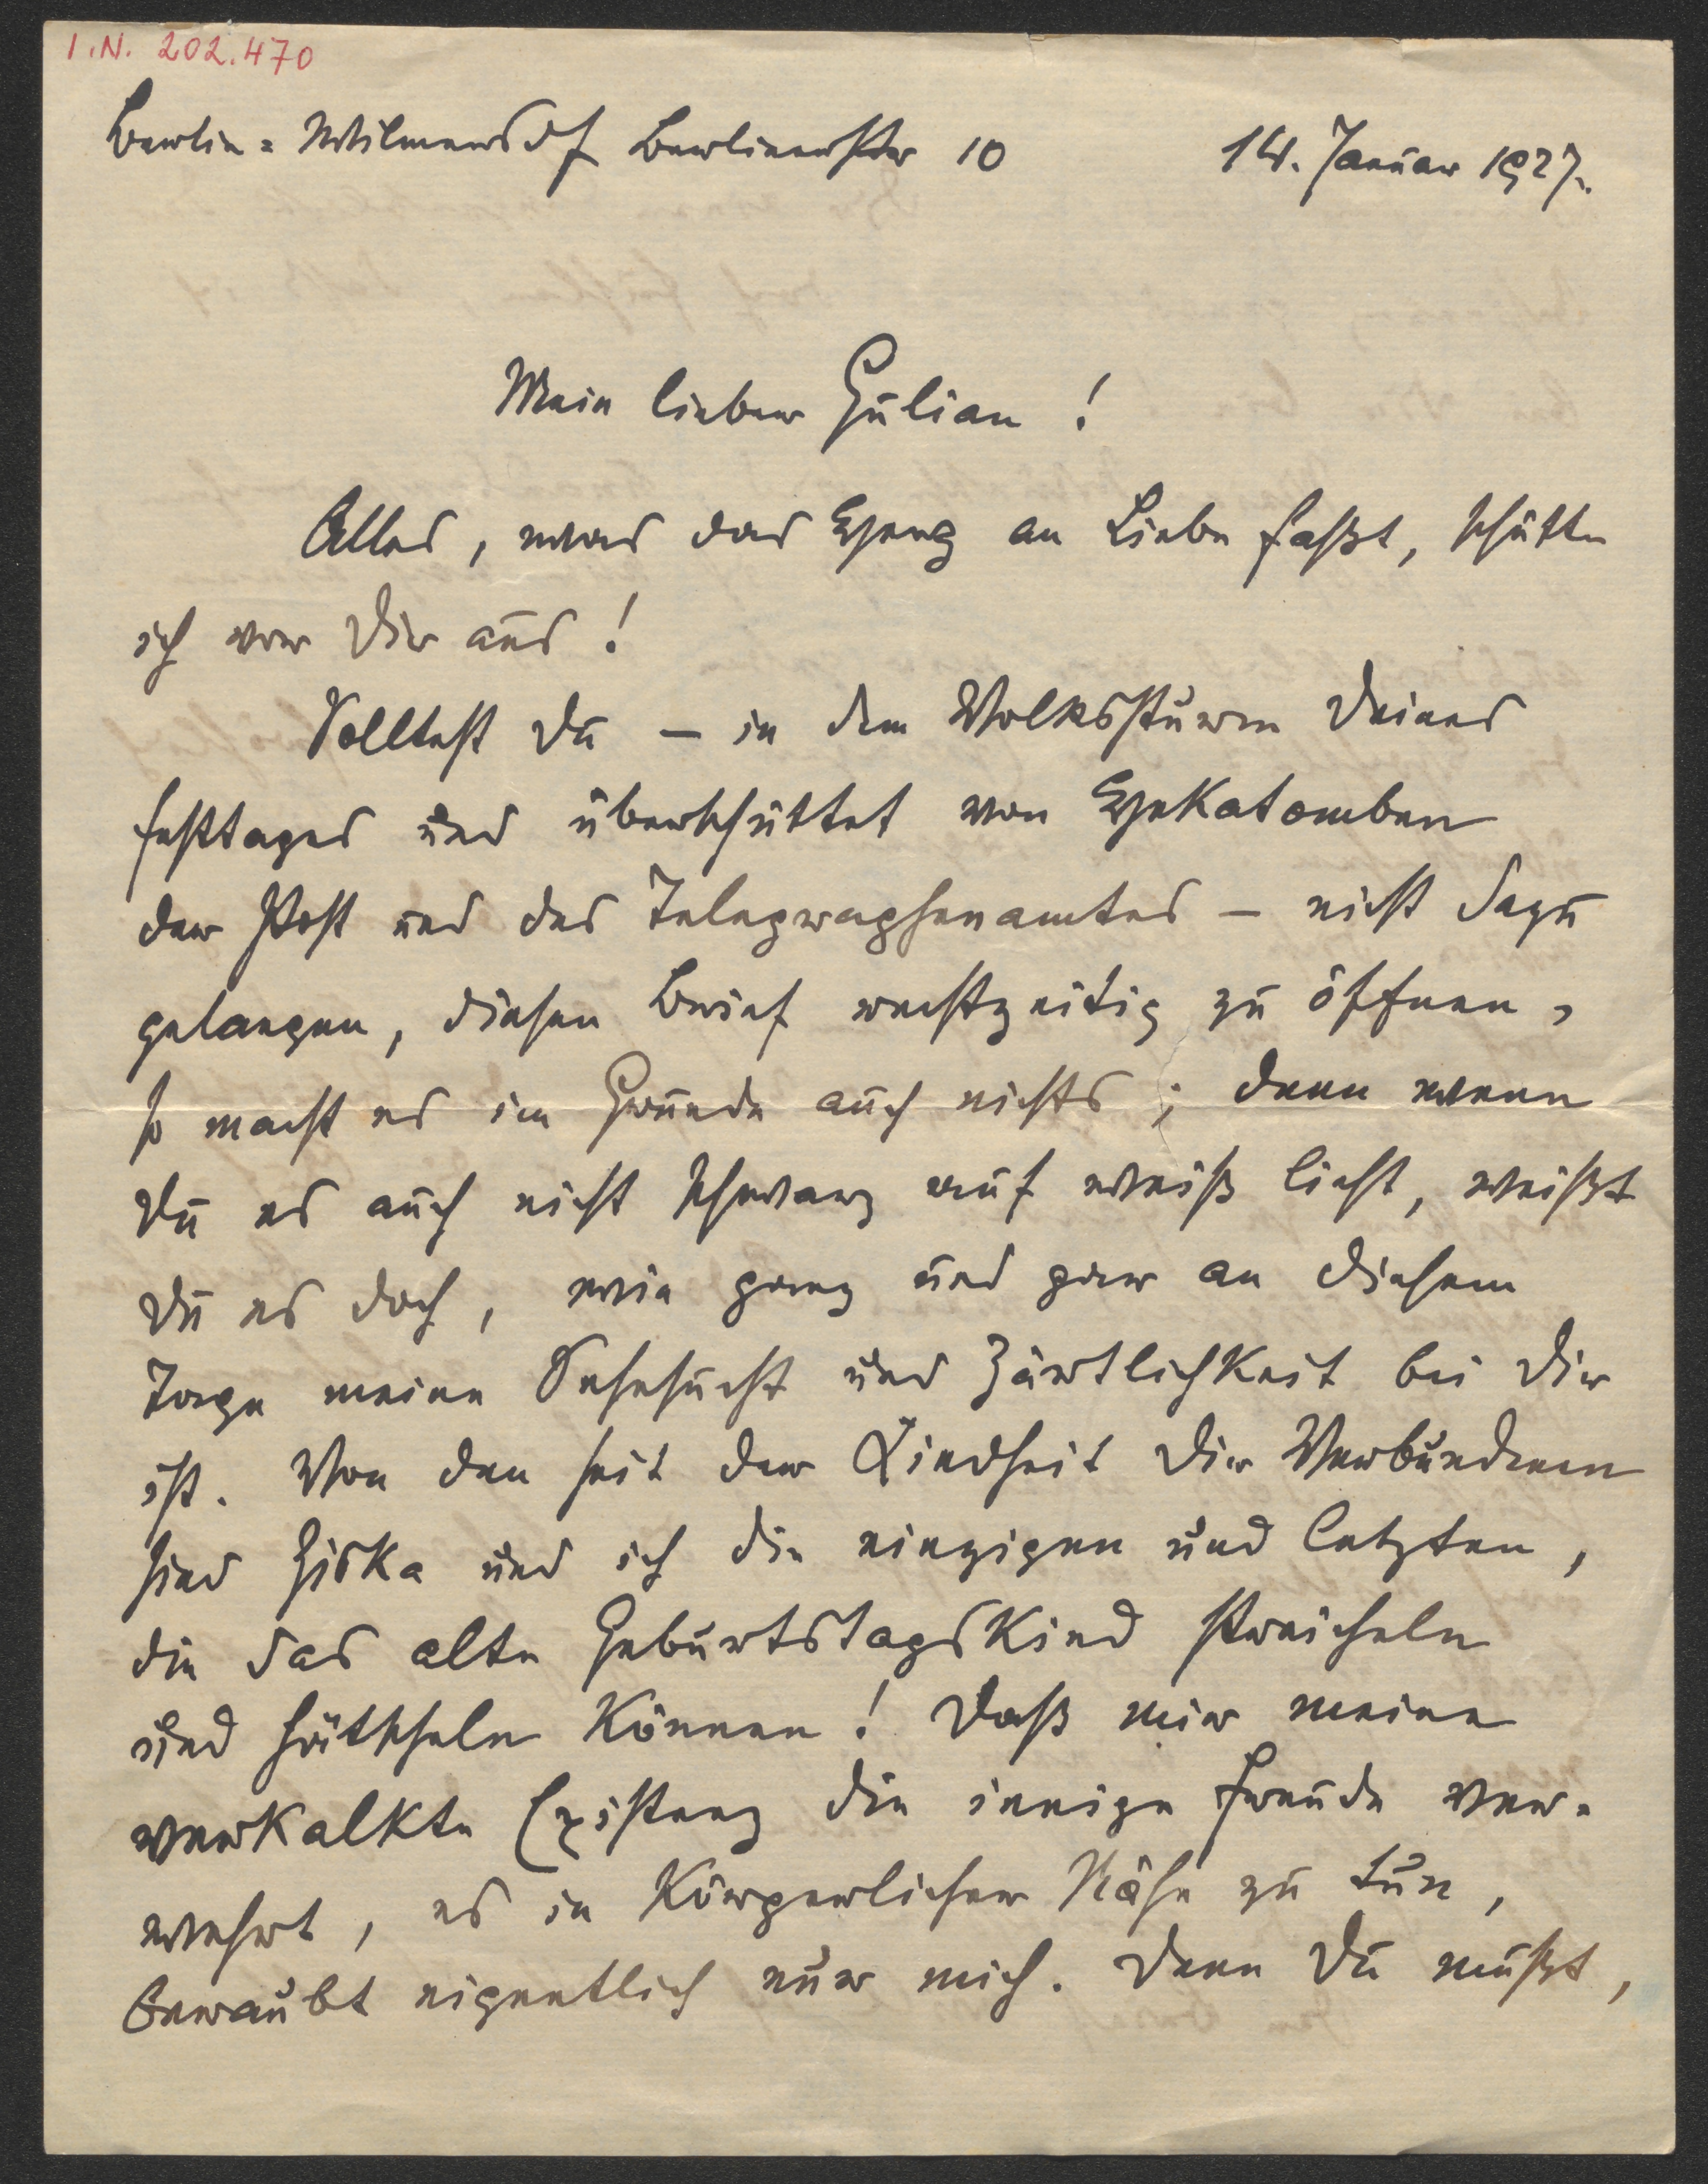 I.N. 202.470
Berlin=Wilmersdf Berlinerstr 10 14. Januar 1927.
Mein lieber Julian!
Alles, was das Herz an Liebe faßt, schütte
ich vor Dir aus!
Solltest Du – in dem Volkssturm Deines
Festtages und überschüttet von Hekatomben
der Post und des Telegraphenamtes – nicht dazu
gelangen, diesen Brief rechtzeitig zu öffnen,
so macht es im Grunde auch nichts; denn wenn
Du es auch nicht schwarz auf weiß liest, weißt
Du es doch, wie ganz und gar an diesem
Tage meine Sehnsucht und Zärtlichkeit bei Dir
ist. Von den seit der Kindheit Dir Verbundenen
sind Ziska und ich die einzigen und letzten,
die das alte Geburtstagskind streicheln
und hätscheln können! Daß mir meine
verkalkte Existenz die innige Freude ver-
wehrt, es in körperlicher Nähe zu tun,
beraubt eigentlich nur mich. Denn Du mußt,